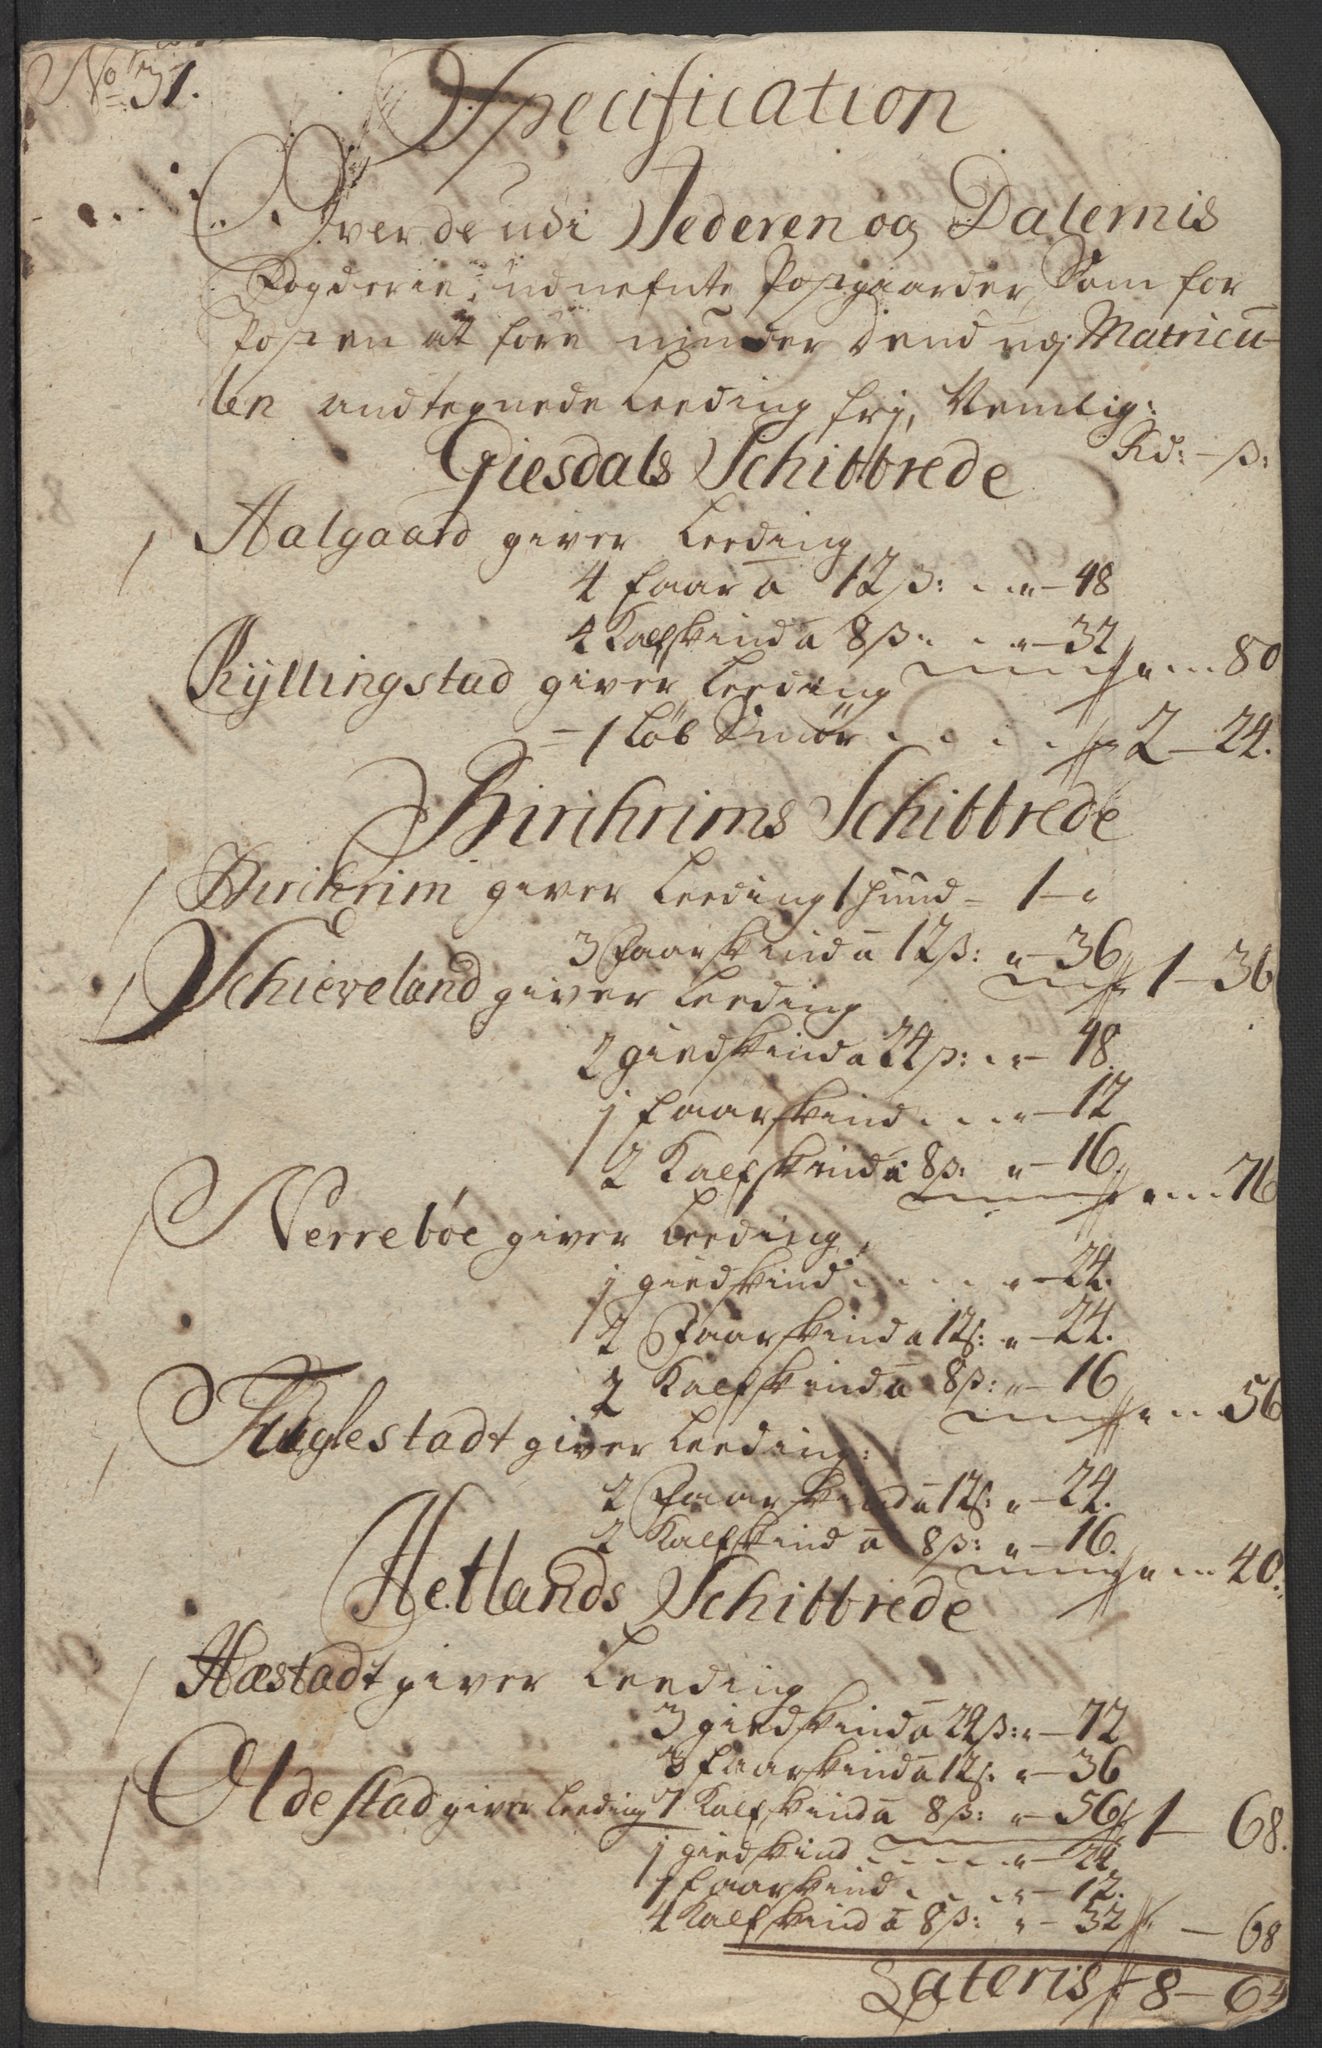 No 31.
Specification
Over de udi Jederen og Dalernis
Fogderie, udnefnte Postgaarder, Som for
Posten at føre niuder dend udj Matricu-
len andtegnede Leeding frj, Nemlig:
Rd: – ß:
Giesdals Schibbrede
Aalgaard giver Leeding
4 faar a 12 ß: . . „ – 48
4 Kalfskind a 8 ß: . „ – 32 „ – 80
Kyllingstad giver Leeding
– 1 Løb Smør . . . . 2 – 24.
Birchrims Schibbrede
Birchrim giver Leeding 1 hund – 1 – „
3 Faarskind a 12 ß: „ – 36 1 – 36
Schieveland giver Leeding
2 giedskind a 24 ß: . „ – 48.
1 faarskind . . . „ – 12
2 Kalfskind a 8 ß: „ – 16. „ – 76
Nerrebøe giver Leeding,
1 giedskind . . . . „ – 24.
2 Faarskind a 12 ß: „ – 24.
2 Kalfskind a 8 ß: „ – 16 „ – 56
Fuglestadt giver Leeding:
2 Faarskind a 12 ß: „ – 24.
2 Kalfskind a 8 ß: „ – 16. „ – 40.
Hetlands Schibbrede
Hæstadt giver Leeding
3 giedskind a 24 ß: „ – 72
3 faarskind a 12 ß. „ – 36
7 Kalfskind a 8 ß: „ – 56 1 – 68.
Oldestad giver Leeding
1 giedskind . . . . „ – 24.
1 faarskind . . . „ – 12.
4 Kalfskind a 8 ß: „ – 32 – 68
Lateris 8 – 64